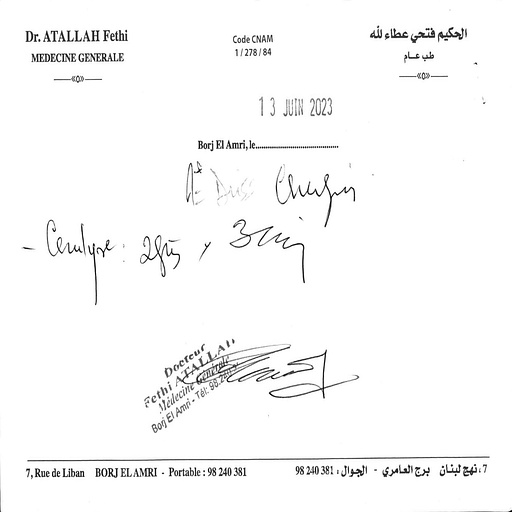 Dr. ATALLAH Fethi
MEDECINE GENERALE
Code CNAM
1 / 278 / 84
الحكيم فتحي عطاء لله
طب عـام
13 JUIN 2023
Borj El Amri, le
- Cerulyse : 2gtts x 3/j
Docteur
Fethi ATALLAH
Médecine Générale
Borj El Amri - Tél: 98.240
7, Rue de Liban BORJ EL AMRI - Portable : 98 240 381
7، نهج لبنان برج العامري - الجوال : 381 240 98